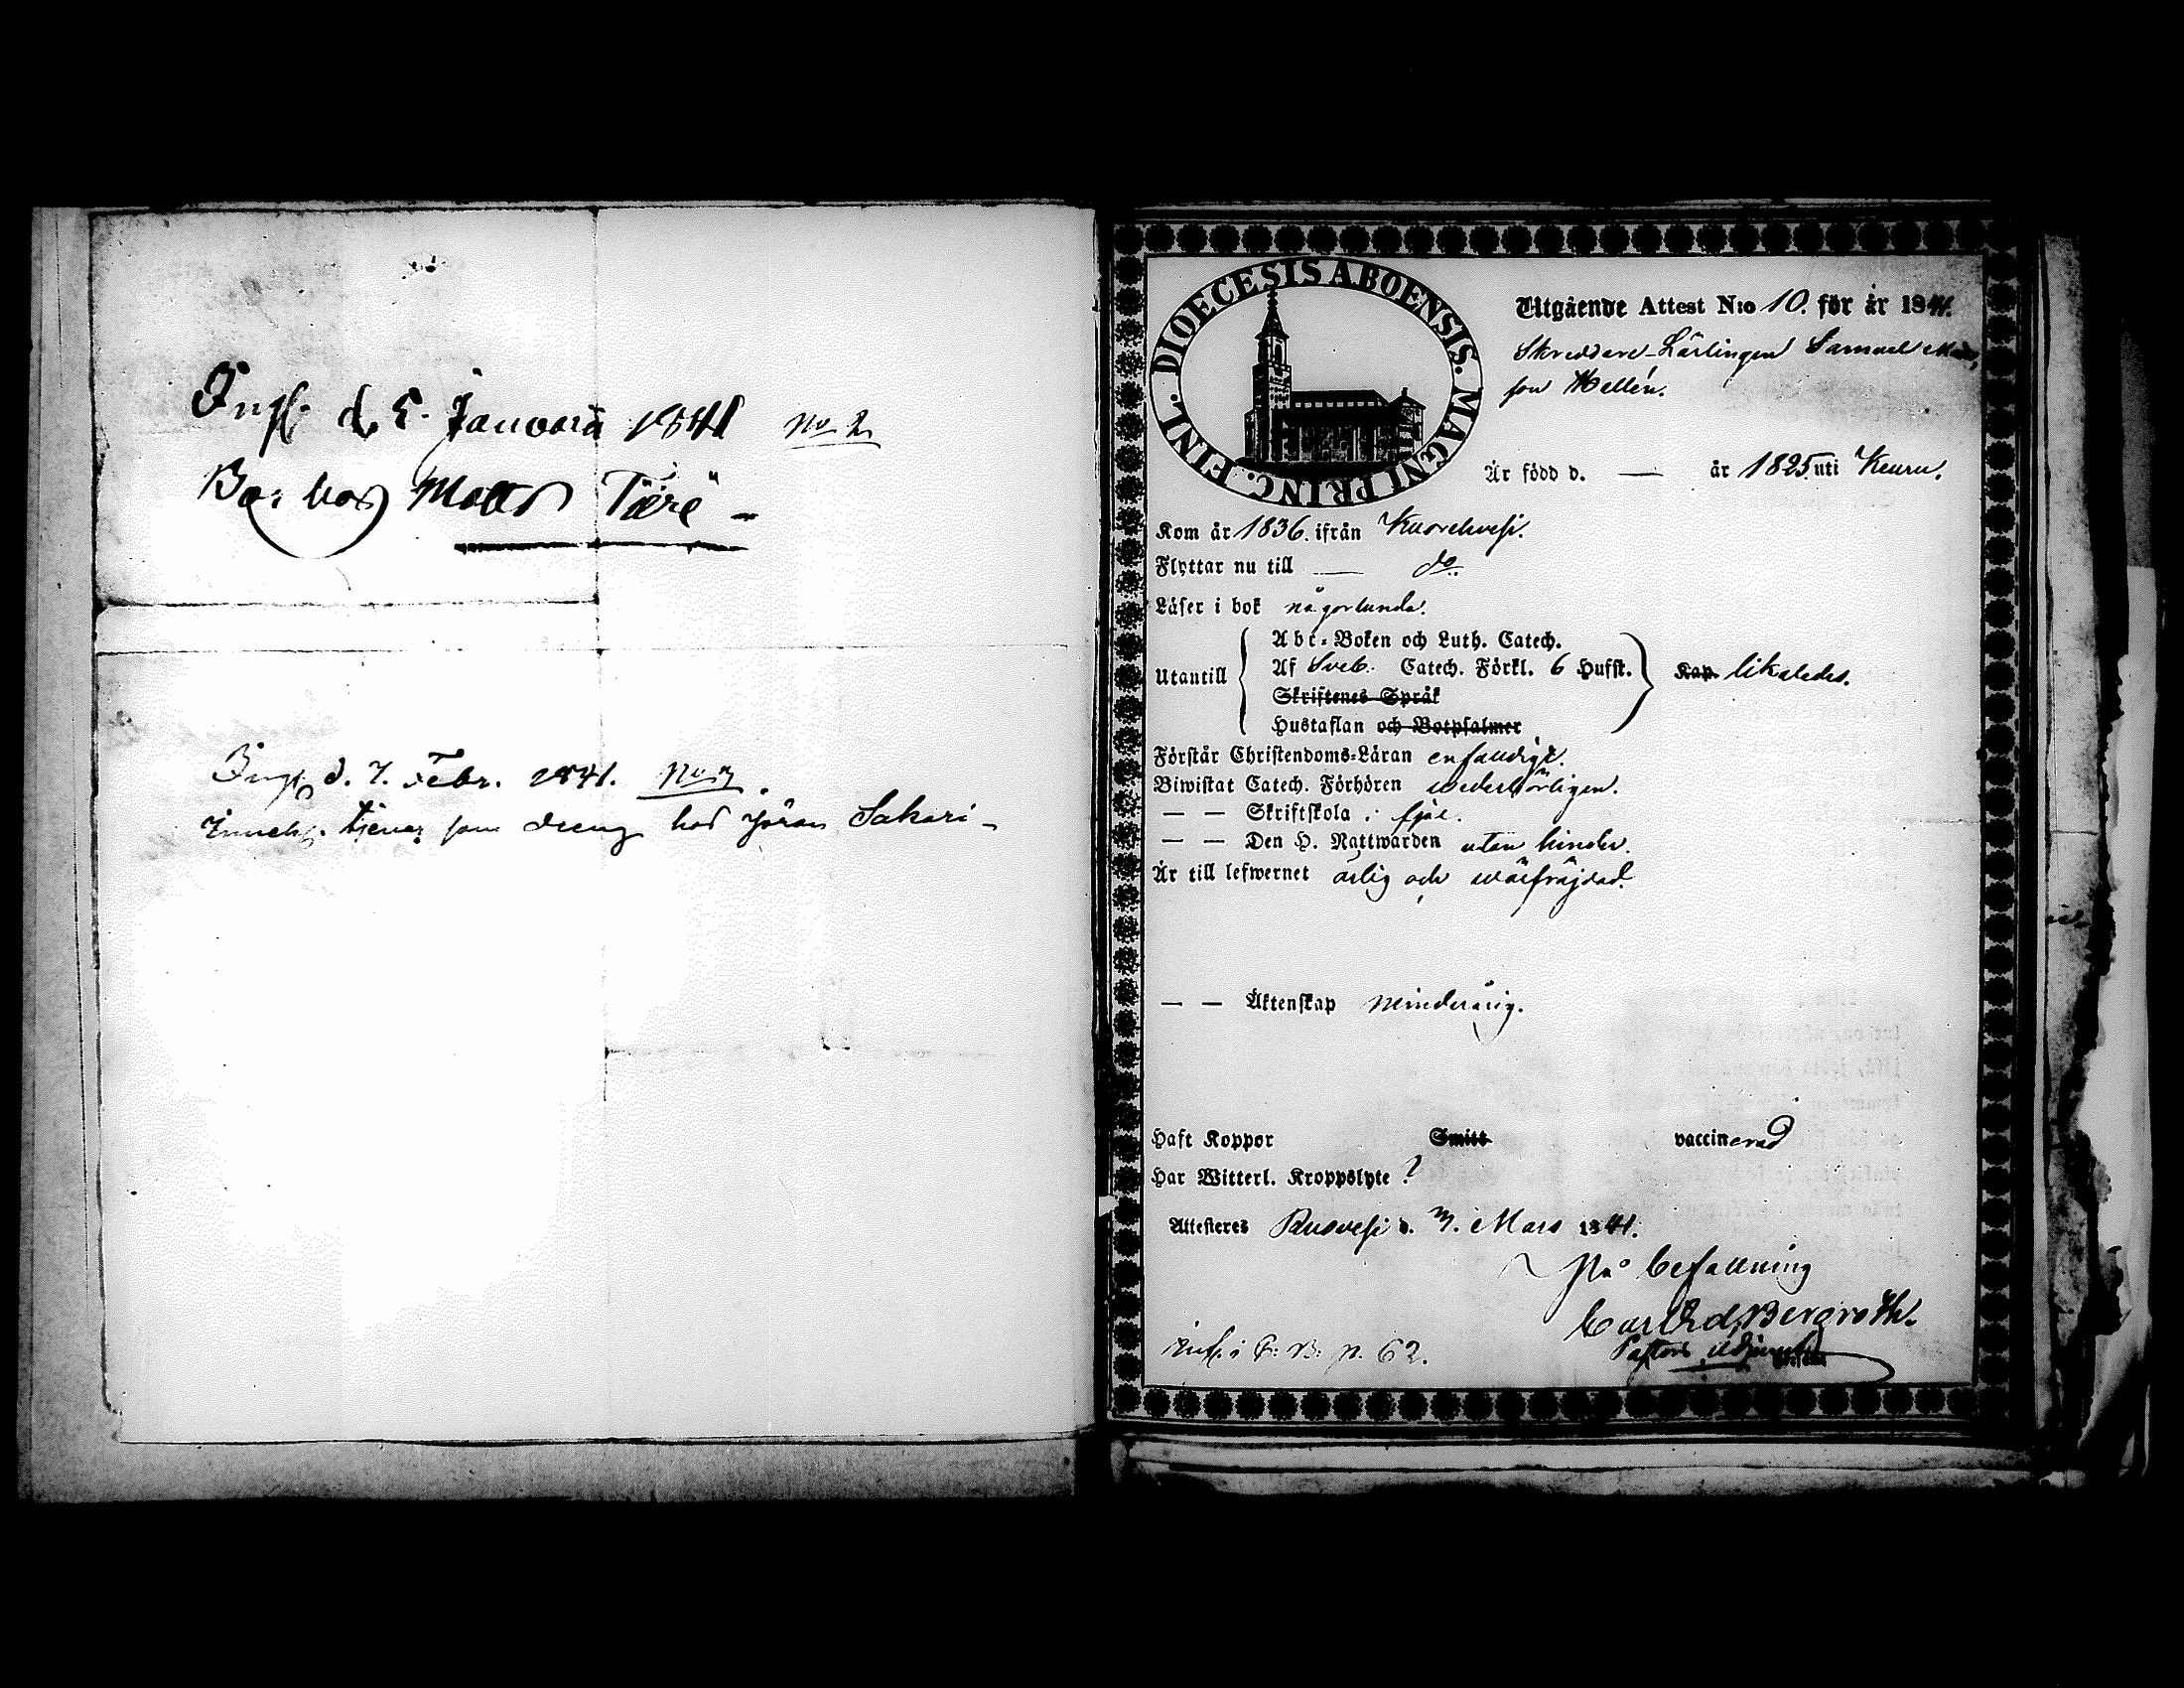 Ingf. d. 5. Januarii 1841 No 2
Bor hos Matts Tiere -
Ingf. d. 7. Febr. 1841. No 3.
Innehf. tjenar som dreng hos Jöran Sakari -
DIOECESIS ABOENSIS. MAGNI PRINC. FINL.
Utgående Attest N:o 10. för år 1841.
Skreddare-Lärlingen Samuel Matts
son Hellén.
Är född d. — år 1825. uti Keuru.
Kom år 1836. ifrån Kuorehvesi.
Flyttar nu till — do.
Läser i bok någorlunda.
Utantill
Abc-Boken och Luth. Catech.
Af Sveb. Catech. Förkl. 6 Hufst.
Skriftenes Språk
Hustaflan och Botpsalmer
Kap. likaledes.
Förstår Christendoms-Läran enfaldigt.
Biwistat Catech. Förhören wederbörligen.
— — Skriftskola. fjol.
— — Den H. Nattwarden utan hinder.
Är till lefwernet ärlig och wälfräjdad.
— — Äktenskap Minderårig.
Haft Koppor Smitt vaccinerad
Har Witterl. Kroppslyte ?
Attesteres Ruovesi d. 3. Mars 1841.
På befallning
Carl Ed. Bergroth.
Pastors Adjunct
inf. i C: B: p. 62.